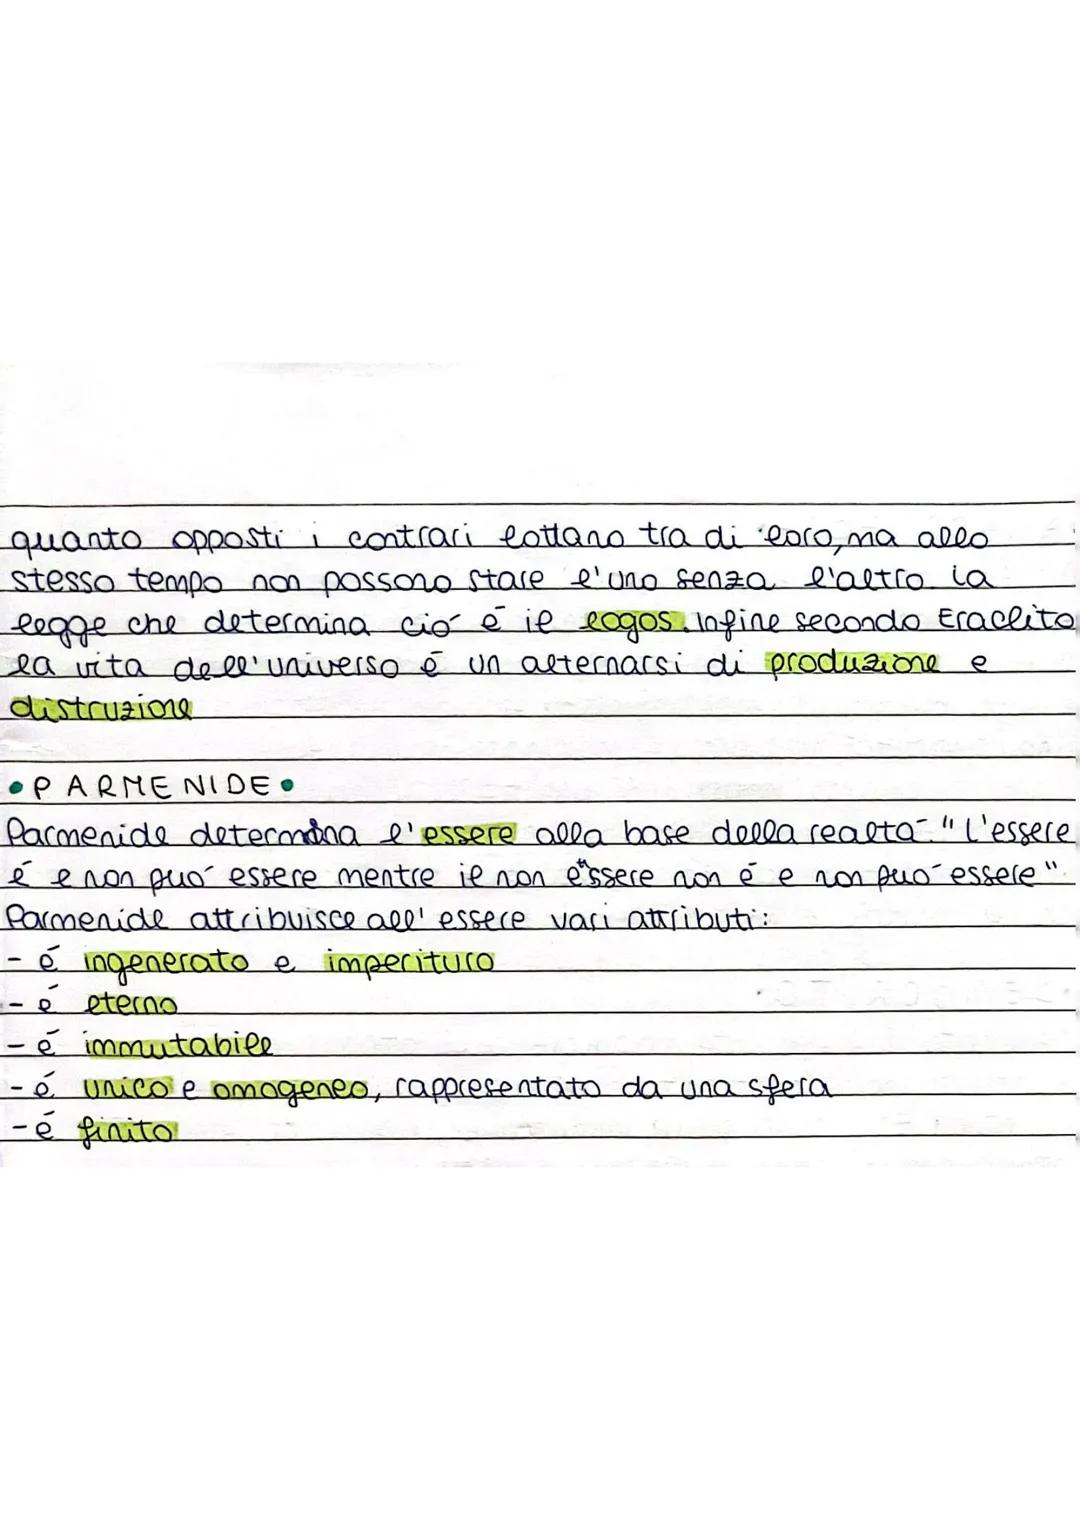 quanto opposti i contrari lottano tra di loro, ma allo
stesso tempo non possono stare l'uno senza l'altro. La
legge che determina ció é il logos. Infine secondo Eraclito
la vita dell'universo é un alternarsi di produzione e
distruzione
• PARMENIDE •
Parmenide determina l'essere alla base della realtá. "L'essere
é e non puó essere mentre il non essere non é e non puó essere".
Parmenide attribuisce all'essere vari attributi:
- é ingenerato e imperituro
- é eterno
- é immutabile
- é unico e omogeneo, rappresentato da una sfera
- é finito